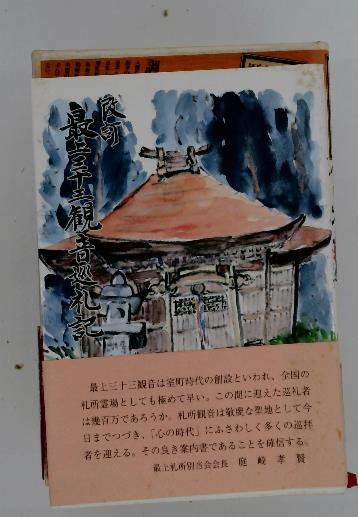 改訂
最上三十三観音巡礼記
最上三十三観音は室町時代の創設といわれ、全国の
札所霊場としても極めて早い。この間に迎えた巡礼者
は幾百万であろうか。札所観音は敬虔な聖地として今
日までつづき、「心の時代」にふさわしく多くの巡拝
者を迎える。その良き案内書であることを確信する。
最上札所別当会会長 庭崎孝賢